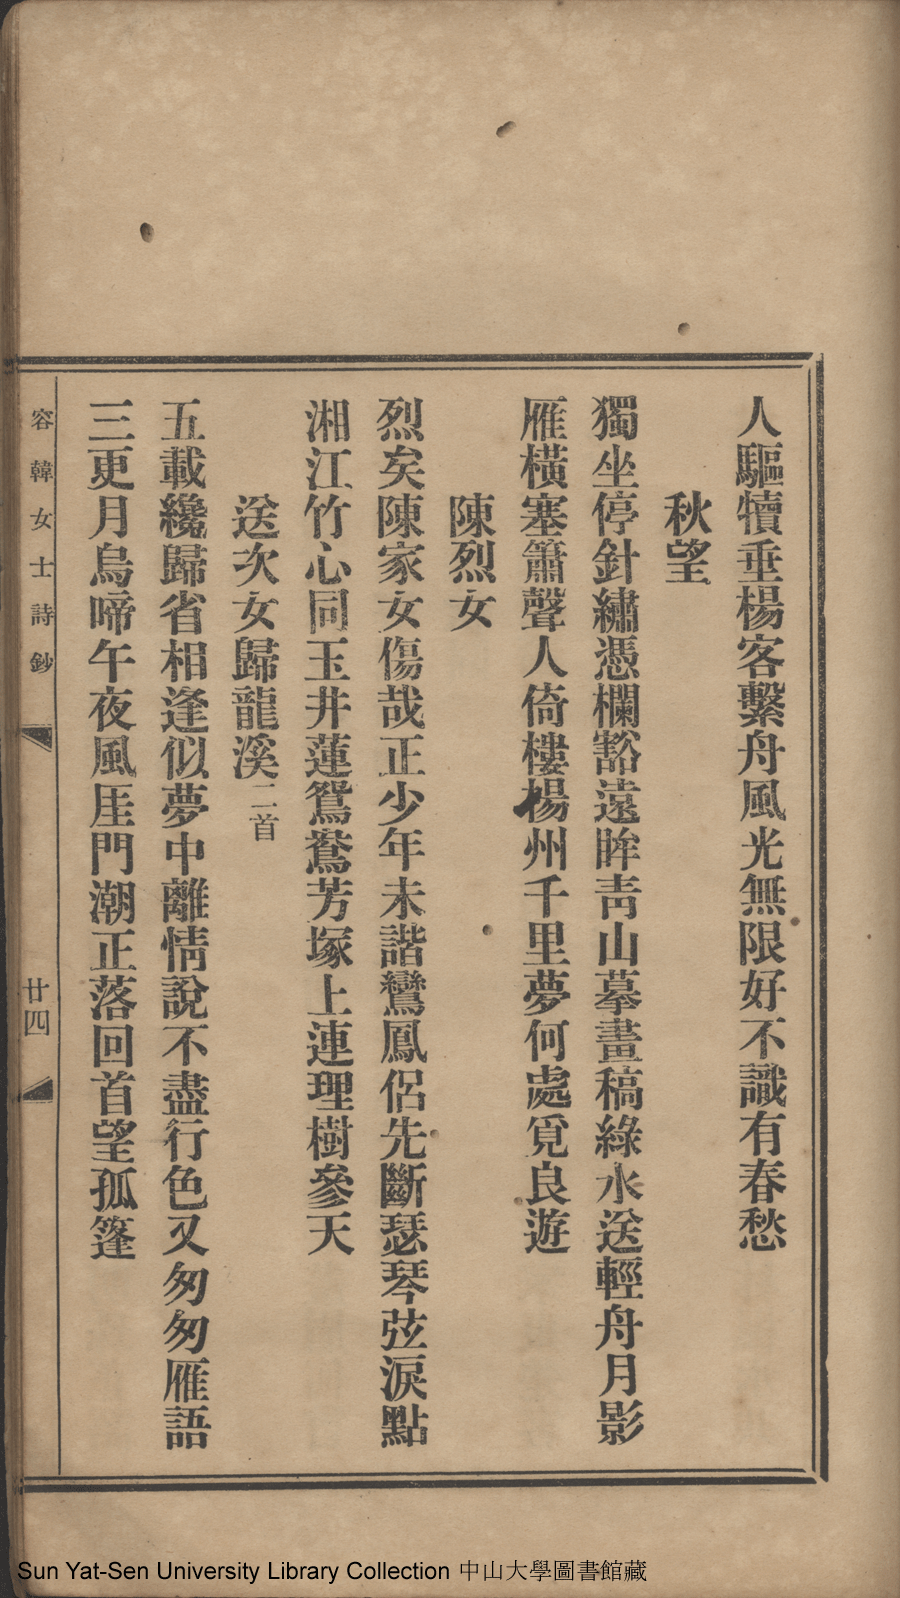 人驅犢垂楊客繫舟風光無限好不識有春愁
秋望
獨坐停針繡憑欄豁遠眸靑山摹畫稿綠水送輕舟月影
雁橫塞簫聲人倚樓楊州千里夢何處覓良遊
陳烈女
烈矣陳家女傷哉正少年未諧鸞鳳侶先斷瑟琴弦淚點
湘江竹心同玉井蓮鴛鴦芳塚上連理樹參天
送次女歸龍溪二首
五載纔歸省相逢似夢中離情說不盡行色又匆匆雁語
三更月烏啼午夜風厓門潮正落回首望孤篷
容韓女士詩鈔
廿四
Sun Yat-Sen University Library Collection 中山大學圖書館藏